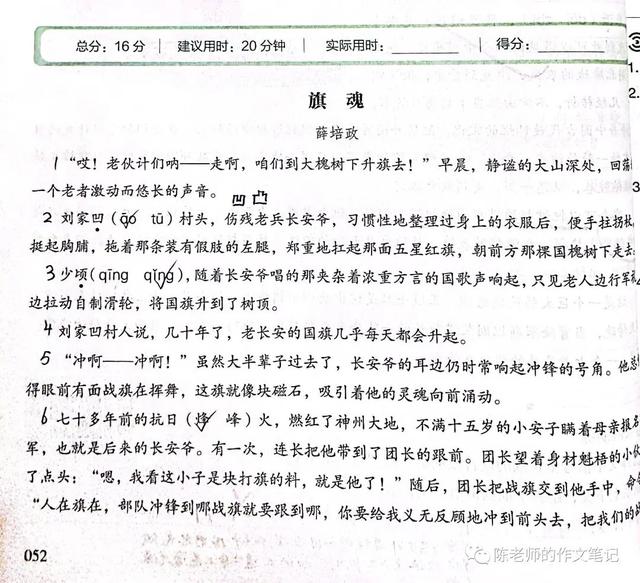 总分：16分 建议用时：20分钟 实际用时： 得分：
旗魂
薛培政
1“哎！老伙计们呐——走啊，咱们到大槐树下升旗去！”早晨，静谧的大山深处，回荡
一个老者激动而悠长的声音。
凹 凸
2 刘家凹（āo tū）村头，伤残老兵长安爷，习惯性地整理过身上的衣服后，便手拄拐杖
挺起胸脯，拖着那条装有假肢的左腿，郑重地扛起那面五星红旗，朝前方那棵国槐树下走去
3 少顷（qīng qǐng），随着长安爷唱的那夹杂着浓重方言的国歌声响起，只见老人边行军
边拉动自制滑轮，将国旗升到了树顶。
4 刘家凹村人说，几十年了，老长安的国旗几乎每天都会升起。
5 “冲啊——冲啊！”虽然大半辈子过去了，长安爷的耳边仍时常响起冲锋的号角。他总
得眼前有面战旗在挥舞，这旗就像块磁石，吸引着他的灵魂向前涌动。
6 七十多年前的抗日（烽 峰）火，燃红了神州大地，不满十五岁的小安子瞒着母亲报名
军，也就是后来的长安爷。有一次，连长把他带到了团长的跟前。团长望着身材魁梧的小伙
了点头：“嗯，我看这小子是块打旗的料，就是他了！”随后，团长把战旗交到他手中，命
“人在旗在，部队冲锋到哪战旗就要跟到哪，你要给我义无反顾地冲到前头去，把我们的战
052
陈老师的作文笔记
1.
2.
3